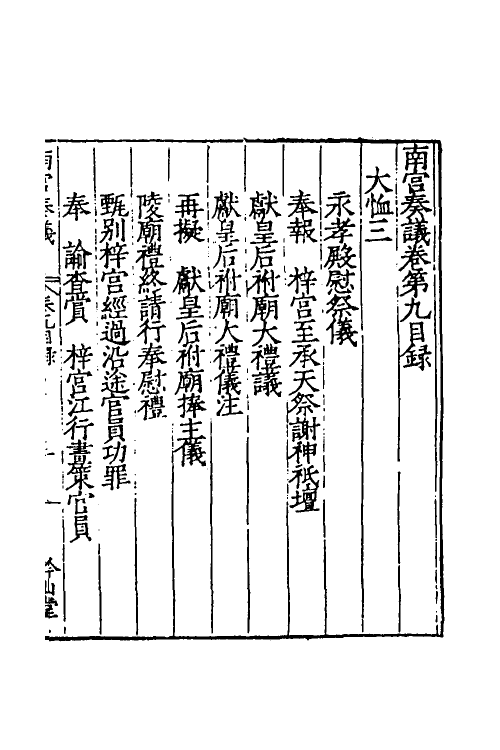 南宫奏議卷第九目録
大恤三
永孝殿慰祭儀
奉報　梓宫至承天祭謝神祇壇
獻皇后祔廟大禮議
獻皇后祔廟大禮儀注
再擬　獻皇后祔廟捧主儀
陵廟禮終請行奉慰禮
甄别梓宫經過沿途官員功罪
奉　諭查賞　梓宫江行畫策官員
南宫奏議　卷九目録　一　鈐山堂